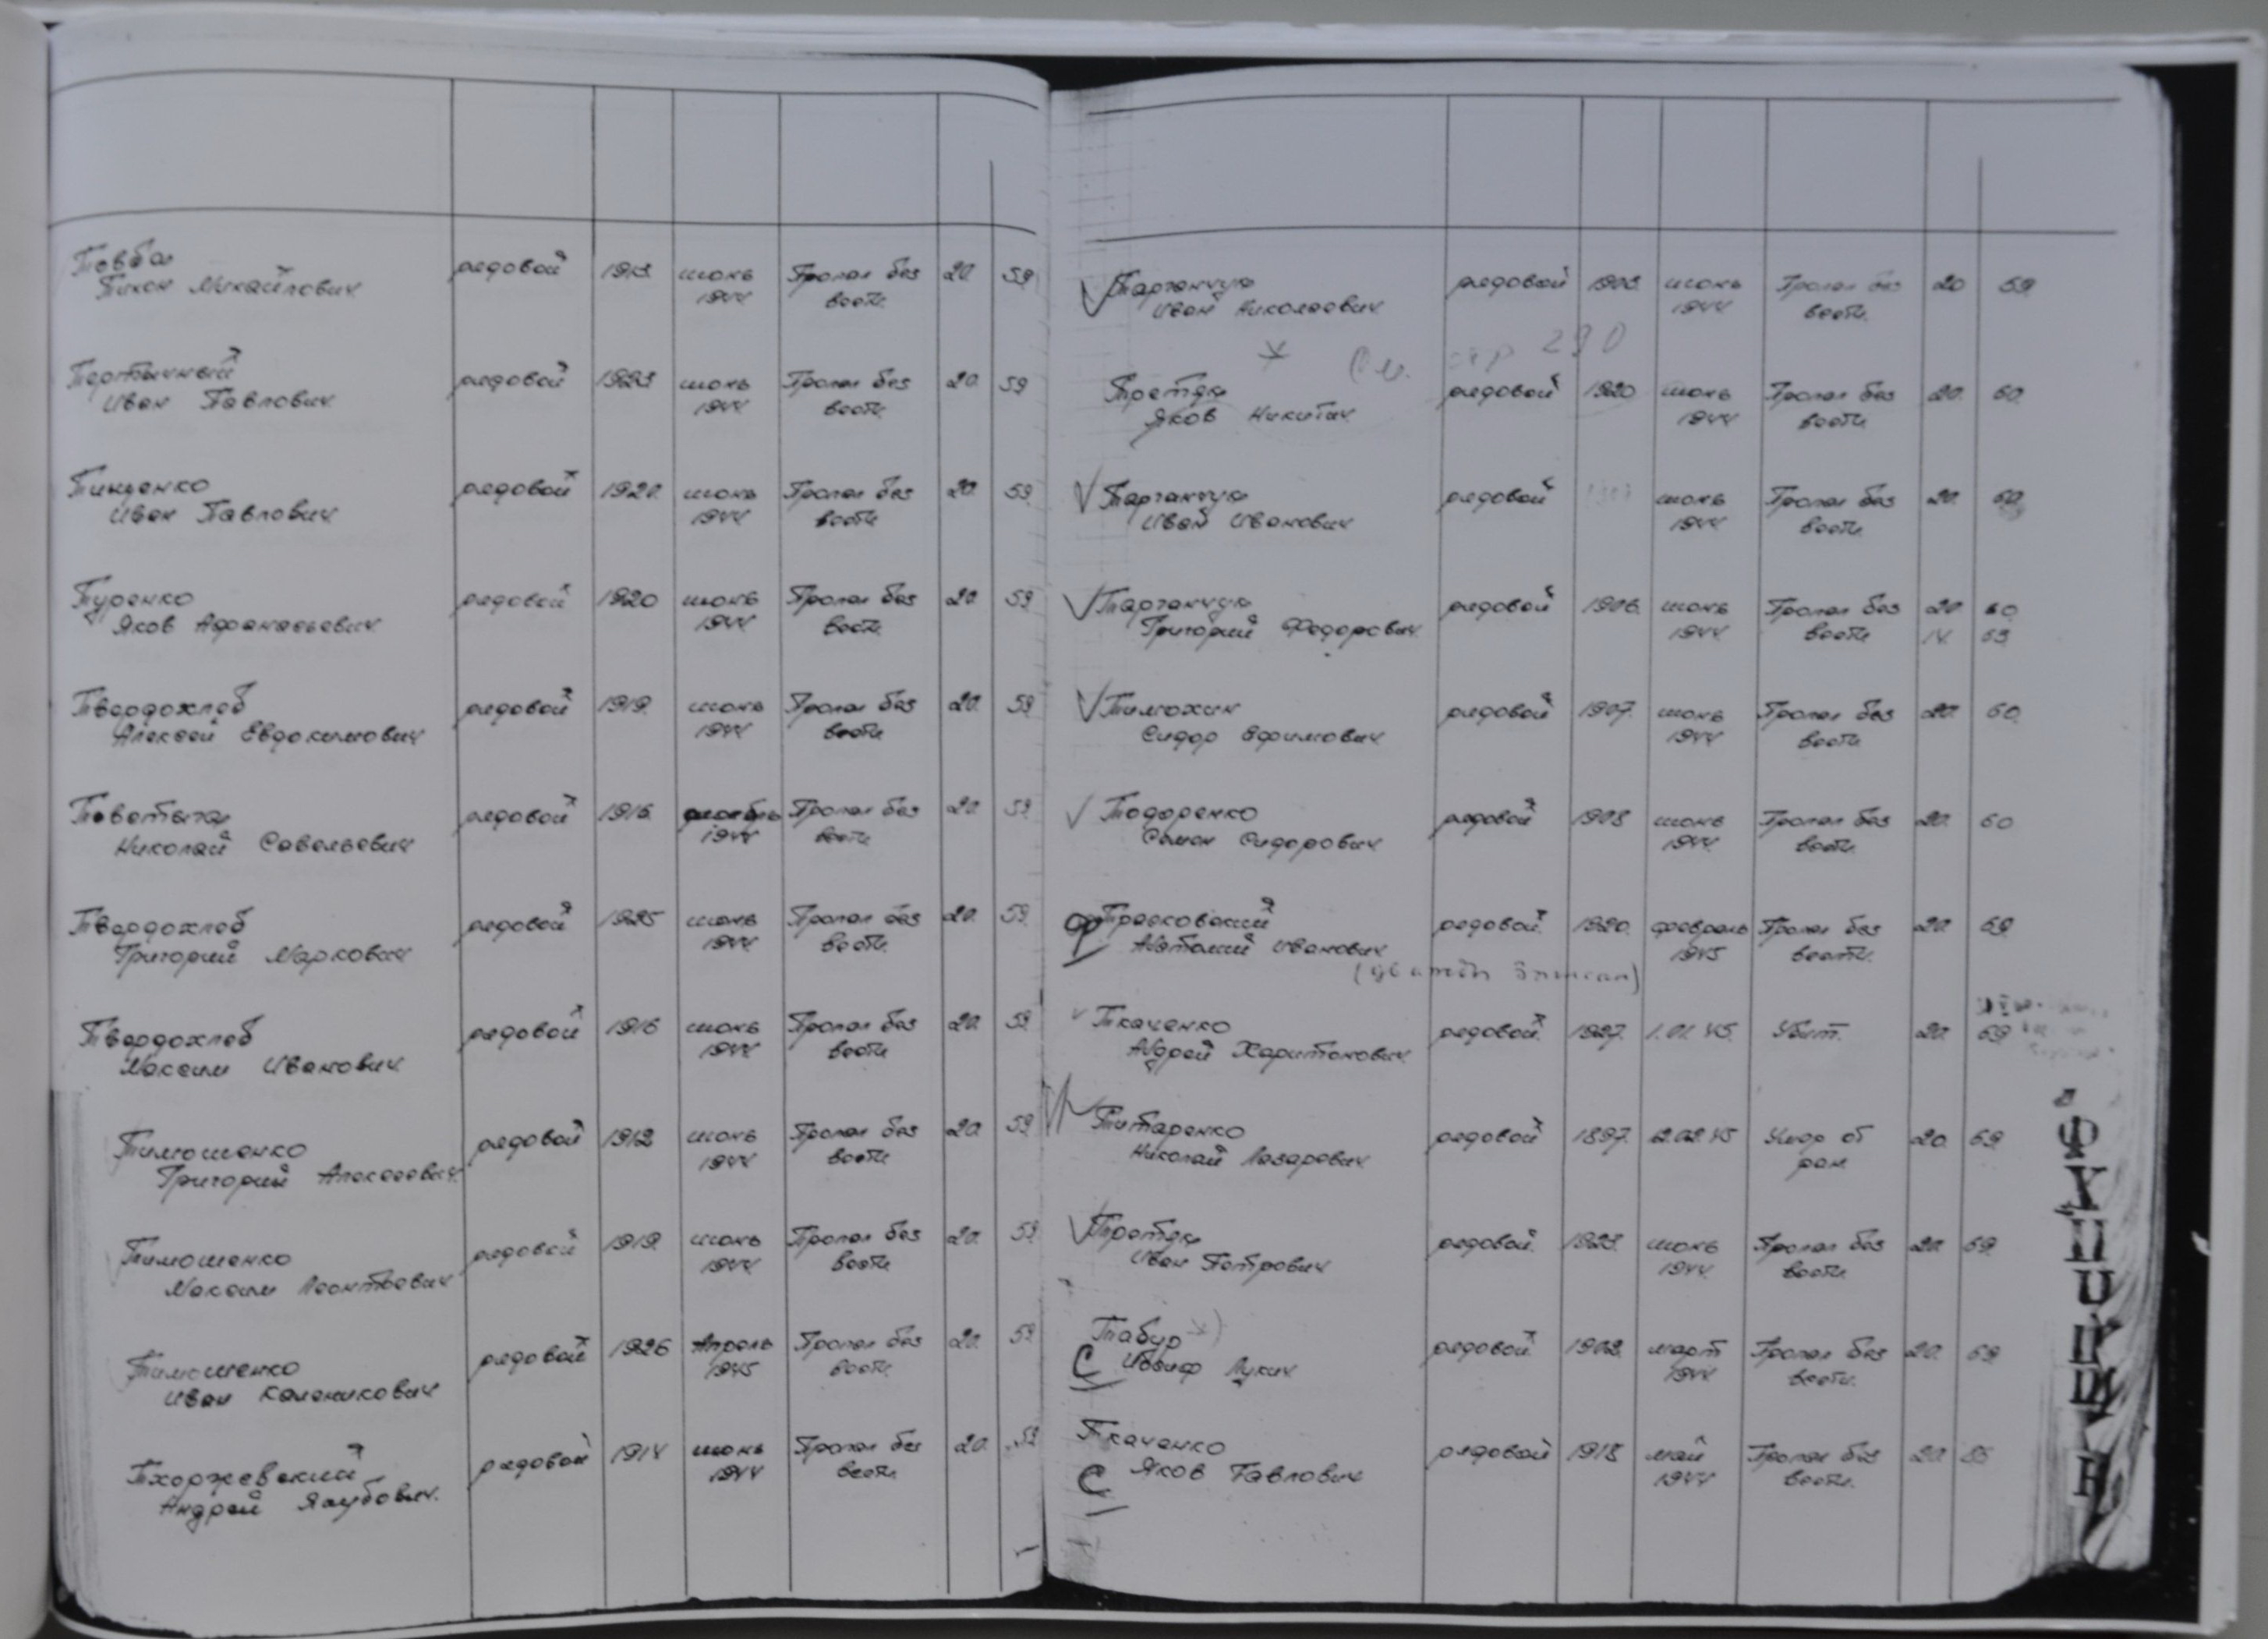 Товбол рядовой 1913. июнь Пропал без 20. 59
Тихон Михайлович 1944 вести.
Тертычный рядовой 1923 июнь Пропал без 20. 59
Иван Павлович 1944 вести.
Тинценко рядовой 1920. июнь Пропал без 20. 59
Иван Павлович 1944 вести
Туренко рядовой 1920 июнь Пропал без 20. 59
Яков Афанасьевич 1944 вести.
Твердохлеб рядовой 1919. июнь Пропал без 20. 59
Алексей Евдокимович 1944 вести
рядовой 1916. Пропал без 20. 59
Николай Савельевич 1944 вести
Твердохлеб рядовой 1925 июнь Пропал без 20. 59
Григорий Маркович 1944 вести.
Твердохлеб рядовой 1916 июнь Пропал без 20. 59
Максим Иванович 1944 вести
Тимошенко рядовой 1912 июнь Пропал без 20. 59
Григорий Алексеевич 1944 вести
Тимошенко рядовой 1919. июнь Пропал без 20. 59
Максим Леонтьевич 1944 вести
Тимошенко рядовой 1926 Апрель Пропал без 20. 59
Иван Каленикович 1945 вести.
Тхоржевский рядовой 1914 июнь Пропал без 20. 59
Андрей Якубович. 1944 вести
Тарганчук рядовой 1903. июнь Пропал без 20 59
Иван Николаевич 1944 вести.
См. стр 290
Третяк рядовой 1920 июнь Пропал без 20. 60.
Яков Никитич 1944 вести
Тарганчук рядовой июнь Пропал без 20. 60
Иван Иванович 1944 вести.
Тарганчук рядовой 1906. июнь Пропал без 20 60
Григорий Федорович 1944 вести 14. 63
Тимохин рядовой 1907. июнь Пропал без 20. 60.
Сидор Ефимович 1944 вести
Тодоренко рядовой 1903 июнь Пропал без 20. 60
Семен Сидорович 1944. вести.
рядовой. 1920. февраль Пропал без 20. 69
Анатолий Иванович 1945 вести.
Ткаченко рядовой. 1927. 1.01.45. Убит. 20. 69
Андрей Харитонович
Титаренко рядовой 1897. 2.02.45 Умер от 20. 69
Николай Лазаревич ран
Третяк рядовой. 1923. июнь Пропал без 20. 69.
Иван Петрович 1944. вести.
Табур рядовой. 1902. март Пропал без 20. 69
С Иосиф Лукич 1944 вести.
Ткаченко рядовой 1918 май Пропал без 20.
С Яков Павлович 1944 вести.
Ф
Х